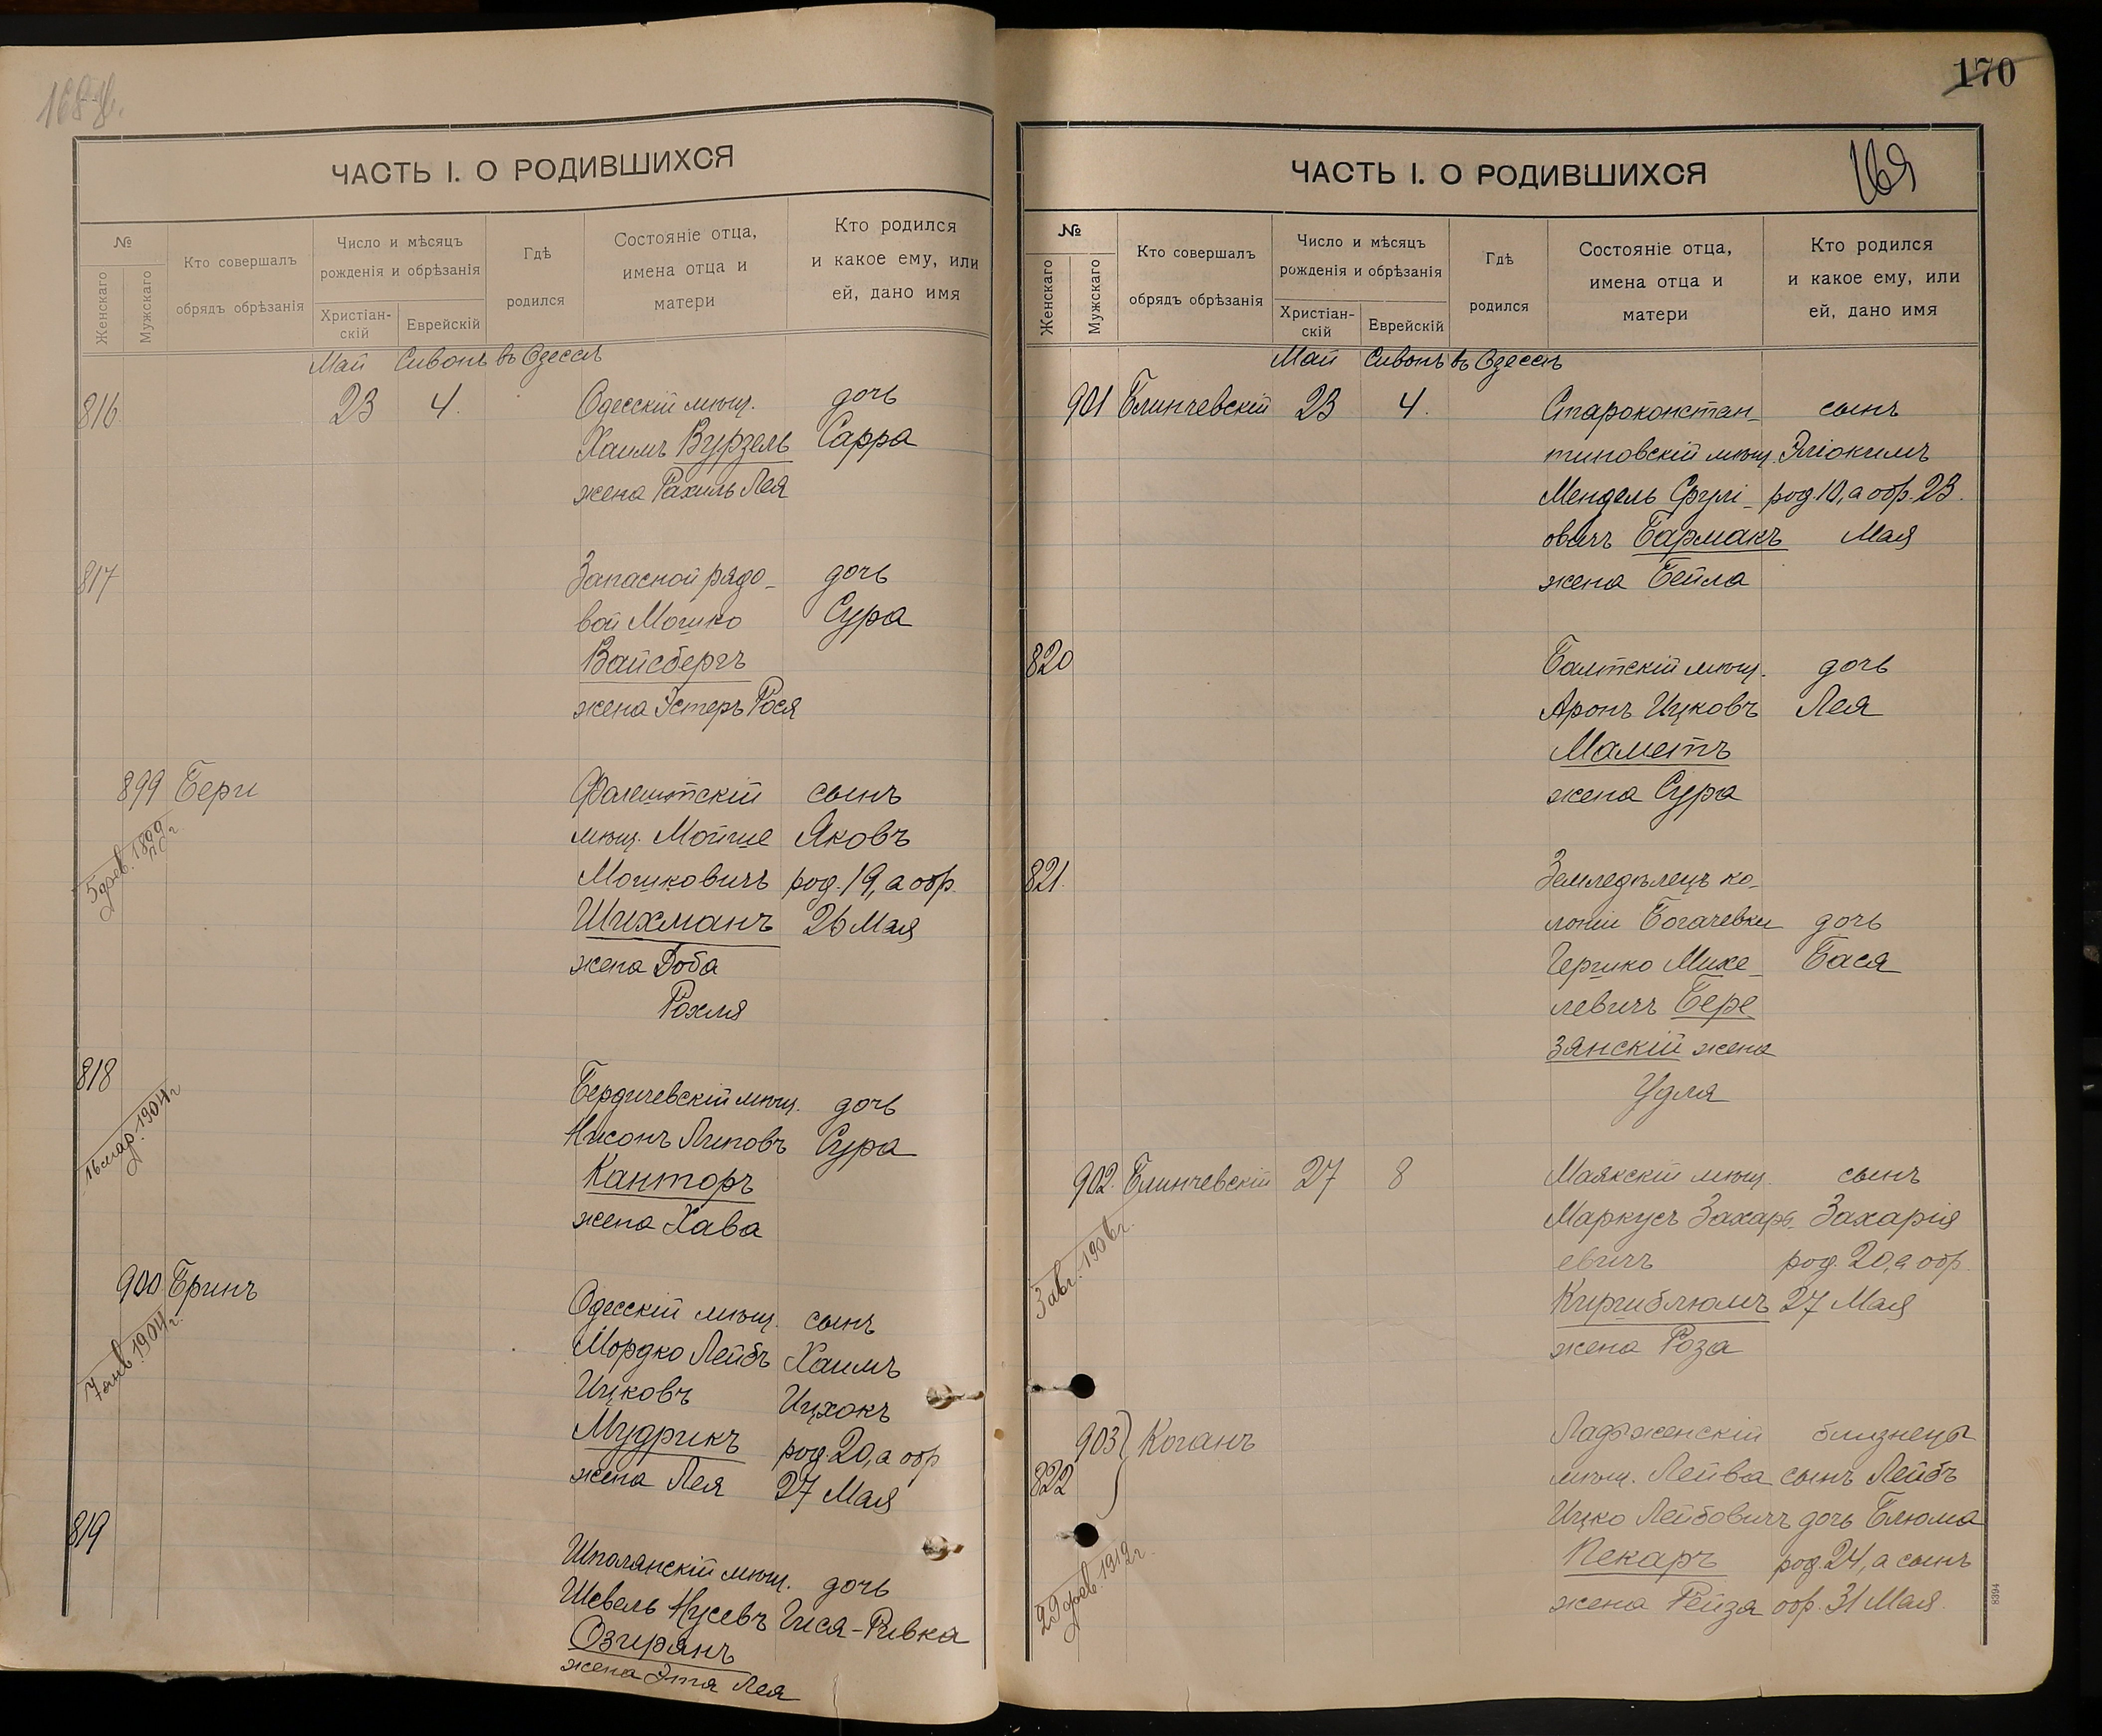 ЧАСТЬ I. О РОДИВШИХСЯ
№
Женскаго
Мужскаго
Кто совершалъ
обрядъ обрѣзанія
Число и мѣсяцъ
рожденія и обрѣзанія
Христіан-
скій
Еврейскій
Гдѣ
родился
Состояніе отца,
имена отца и
матери
Кто родился
и какое ему, или
ей, дано имя
Май Сивонъ въ Одессѣ
816 23 4. Одесскій мѣщ. дочь
Хаимъ Вурзель Сарра
жена Рахиль Лея
817 Запасной рядо- дочь
вой Мошко Сура
Вайсбергъ
жена Эстеръ Рося
899 Бери Фалештскій сынъ
5 фев. 1899 г.
мѣщ. Мойше Яковъ
Мошковичъ род. 19, а обр.
Шихманъ 26 Мая
жена Доба
Рохля
818 Бердичевскій мѣщ. дочь
16 мар. 1904 г
Нисонъ Липовъ Сура
Канторъ
жена Хава
900 Бринъ Одесскій мѣщ. сынъ
7 янв. 1904 г.
Мордко Лейбъ Хаимъ
Ицковъ Ицхокъ
Мудрикъ род. 20, а обр
жена Лея 27 Мая
819 Шполянскій мѣщ. дочь
Шевель Нусевъ Гися-Ривка
Озирянъ
жена Этя Лея
170
169
ЧАСТЬ I. О РОДИВШИХСЯ
№
Женскаго
Мужскаго
Кто совершалъ
обрядъ обрѣзанія
Число и мѣсяцъ
рожденія и обрѣзанія
Христіан-
скій
Еврейскій
Гдѣ
родился
Состояніе отца,
имена отца и
матери
Кто родился
и какое ему, или
ей, дано имя
Май Сивонъ въ Одессѣ
901 Блинчевскій 23 4. Староконстан- сынъ
тиновскій мѣщ. Эліокимъ
Мендель Сруli- род. 10, а обр. 23.
овичъ Бармакъ Мая
жена Бейла
820 Балтскій мѣщ. дочь
Аронъ Ицковъ Лея
Маметъ
жена Сура
821. Земледѣлецъ ко-
лоніи Богачевки дочь
Гершко Михе- Бася
левичъ Бере
зянскій жена
Удля
902. Блинчевскій 27 8 Маякскій мѣщ. сынъ
3 авг. 1906 г.
Маркусъ Захарь- Захарія
евичъ род. 20, а обр.
Киршблюмъ 27 Мая
жена Роза
903 } Коганъ Ладыженскій близнецы
822 мѣщ. Лейва сынъ Лейбъ
Ицко Лейбовичъ дочь Блюма
29 фев. 1912 г.
Пекаръ род. 24, а сынъ
жена Рейзя обр. 31 Мая.
8394